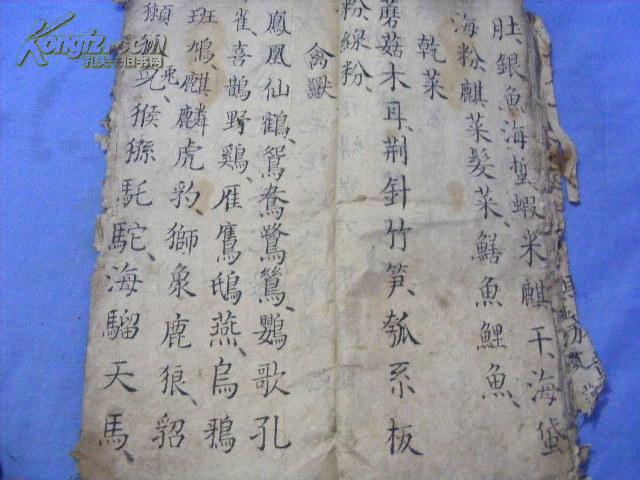 肚、銀魚海蜇蝦米麒干、海黛
海粉麒菜髮菜、鱔魚鯉魚、
乾菜
蘑菇木耳、荆針竹笋、瓠系板
粉線粉、
禽獸
鳳凰仙鶴、鴛鴦鷺鷥、鸚歌孔
雀喜鵲野鷄、雁鷹鴟燕、烏鴉
班鳩、麒麟虎豹、獅象鹿狼、貂
猴猻駝、海騮天馬、
Kongfz.com
孔夫子旧书网